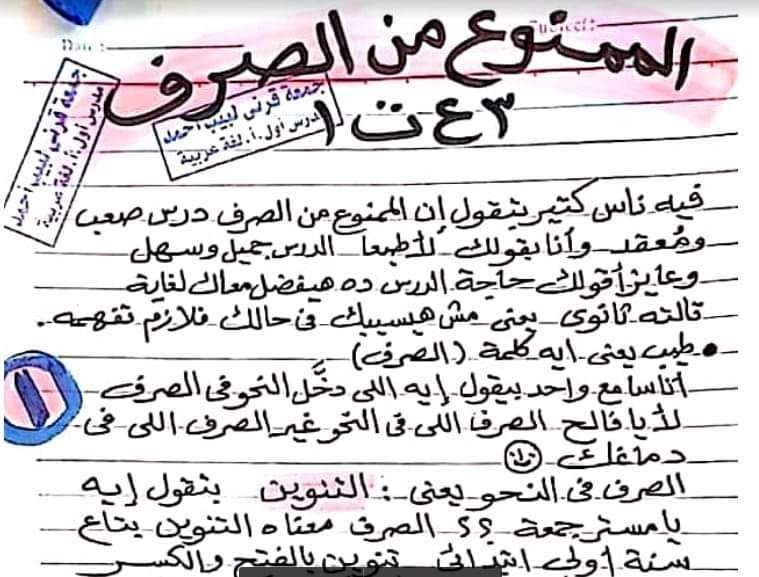 Subject:
Date:
الممنوع من الصرف
٣ ع ت ١
جمعة قرني لبيب أحمد
مدرس أول أ. لغة عربية
جمعة قرني لبيب أحمد
مدرس أول أ. لغة عربية
فيه ناس كتير بتقول إن الممنوع من الصرف درس صعب
ومُعقد وأنا بقولك لأ طبعاً الدرس جميل وسهل
وعايز أقولك حاجة الدرس ده هيفضل معاك لغاية
تالته ثانوى يعنى مش هيسيبك فى حالك فلازم تفهمه.
• طيب يعنى ايه كلمة (الصرف)
١
أنا سامع واحد بيقول إيه اللى دخَّل النحو فى الصرف
لأ يا فالح الصرف اللى فى النحو غير الصرف اللى فى
دماغك
الصرف فى النحو يعنى: التنوين بتقول إيه
يا مستر جمعة ؟؟ الصرف معناه التنوين بتاع
سنة أولى ابتدائى تنوين بالفتح والكسر